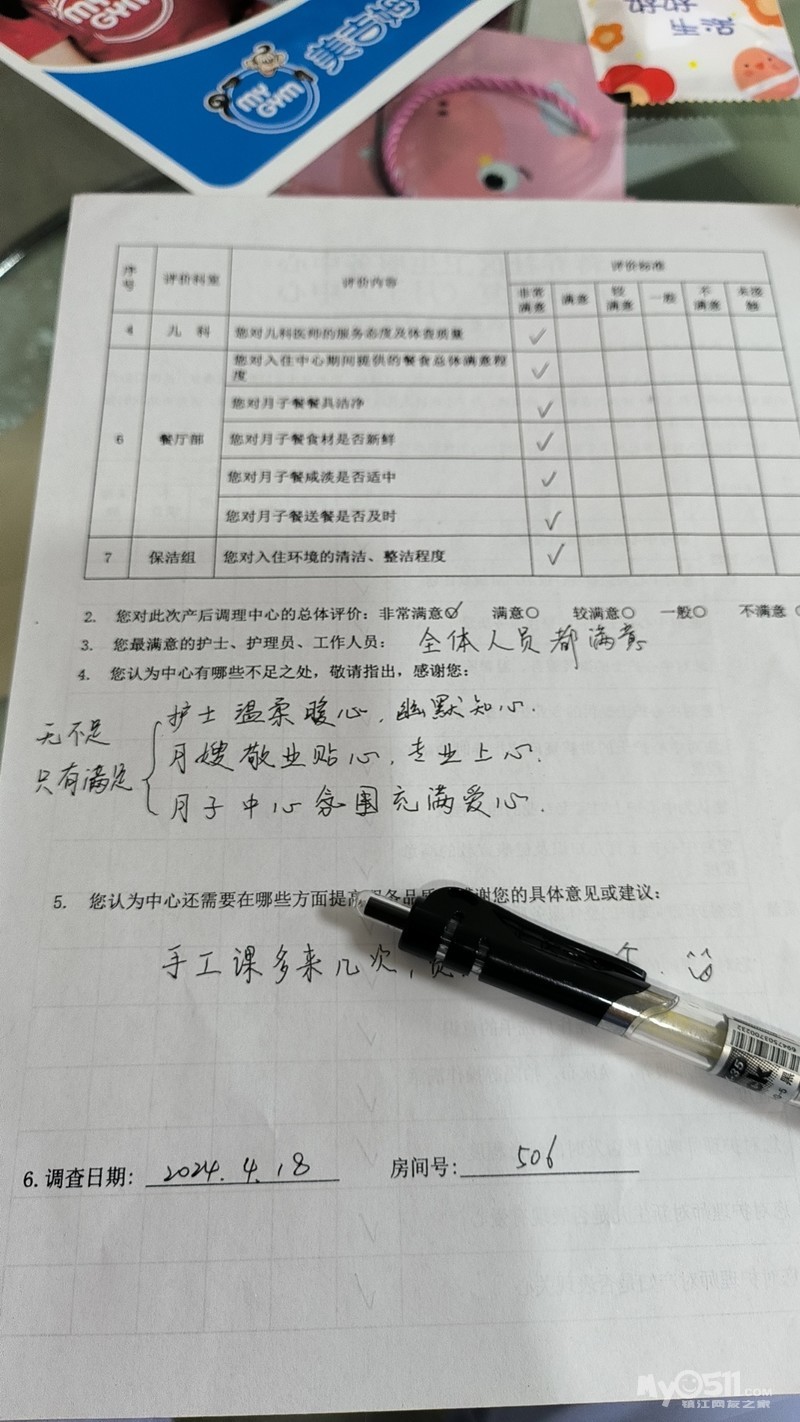 MY GYM
美吉姆
MY GYM
序号 评价科室 评价内容 评价标准
非常满意 满意 较满意 一般 不满意 未接触
4 儿 科 您对儿科医师的服务态度及体查质量 ✓
6 餐厅部 您对入住中心期间提供的餐食总体满意程度 ✓
您对月子餐餐具洁净 ✓
您对月子餐食材是否新鲜 ✓
您对月子餐咸淡是否适中 ✓
您对月子餐送餐是否及时 ✓
7 保洁组 您对入住环境的清洁、整洁程度 ✓
2. 您对此次产后调理中心的总体评价：非常满意✓ 满意○ 较满意○ 一般○ 不满意
3. 您最满意的护士、护理员、工作人员： 全体人员都满意
4. 您认为中心有哪些不足之处，敬请指出，感谢您：
无不足
只有满足
护士温柔暖心，幽默知心.
月嫂敬业贴心，专业上心.
月子中心氛围充满爱心.
5. 您认为中心还需要在哪些方面提高 感谢您的具体意见或建议：
手工课多来几次，
6.调查日期：2024.4.18 房间号：506
6947503700232
MyO511.COM
镇江网友之家